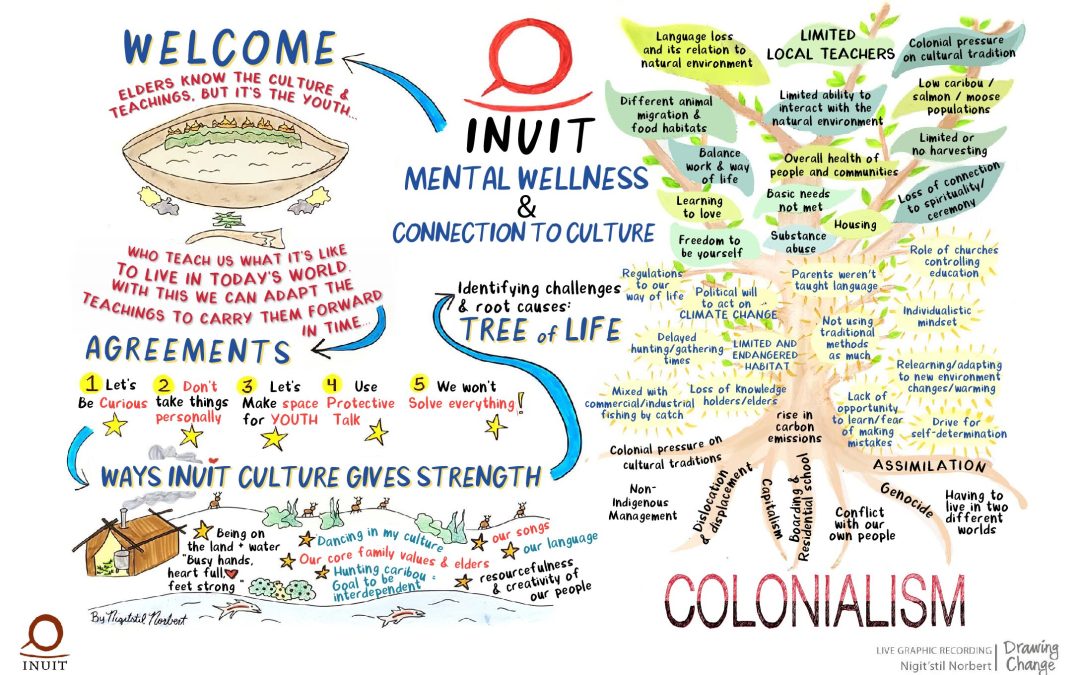 WELCOME
ELDERS KNOW THE CULTURE &
TEACHINGS, BUT IT'S THE YOUTH...
WHO TEACH US WHAT IT'S LIKE
TO LIVE IN TODAY'S WORLD.
WITH THIS WE CAN ADAPT THE
TEACHINGS TO CARRY THEM FORWARD
IN TIME...
AGREEMENTS
1 Let's
Be Curious
2 Don't
take things
personally
3 Let's
Make space
for YOUTH
4 Use
Protective
Talk
5 We won't
Solve everything!
WAYS INUIT CULTURE GIVES STRENGTH
Being on
the land + water
"Busy hands,
heart full,
feet strong"
Dancing in my culture
Our core family values & elders
Hunting caribou =
Goal to be
interdependent
our songs
our language
resourcefulness
& creativity of
our people
By Nigitstil Norbert
INUIT
INUIT
MENTAL WELLNESS
&
CONNECTION TO CULTURE
Identifying challenges
& root causes:
TREE of LIFE
Language loss
and its relation to
natural environment
LIMITED
LOCAL TEACHERS
Colonial pressure
on cultural tradition
Different animal
migration &
food habitats
Limited ability to
interact with the
natural environment
Low caribou /
salmon / moose
populations
Balance
work & way
of life
Overall health of
people and communities
Limited or
no harvesting
Learning
to love
Basic needs
not met
Loss of connection
to spirituality/
ceremony
Freedom to
be yourself
Substance
abuse
Housing
Regulations
to our
way of life
Political will
to act on
CLIMATE CHANGE
Parents weren't
taught language
Role of churches
controlling
education
Individualistic
mindset
Delayed
hunting/gathering
times
LIMITED AND
ENDANGERED
HABITAT
Not using
traditional
methods
as much
Relearning/adapting
to new environment
changes/warming
Mixed with
commercial/industrial
fishing by catch
Loss of knowledge
holders/elders
Lack of
opportunity
to learn/fear
of making
mistakes
Drive for
self-determination
rise in
carbon
emissions
Colonial pressure on
cultural traditions
Non-
Indigenous
Management
Dislocation
& displacement
Capitalism
Boarding &
Residential school
Conflict
with our
own people
ASSIMILATION
Genocide
Having to
live in two
different
worlds
COLONIALISM
LIVE GRAPHIC RECORDING
Nigit'stil Norbert
Drawing
Change